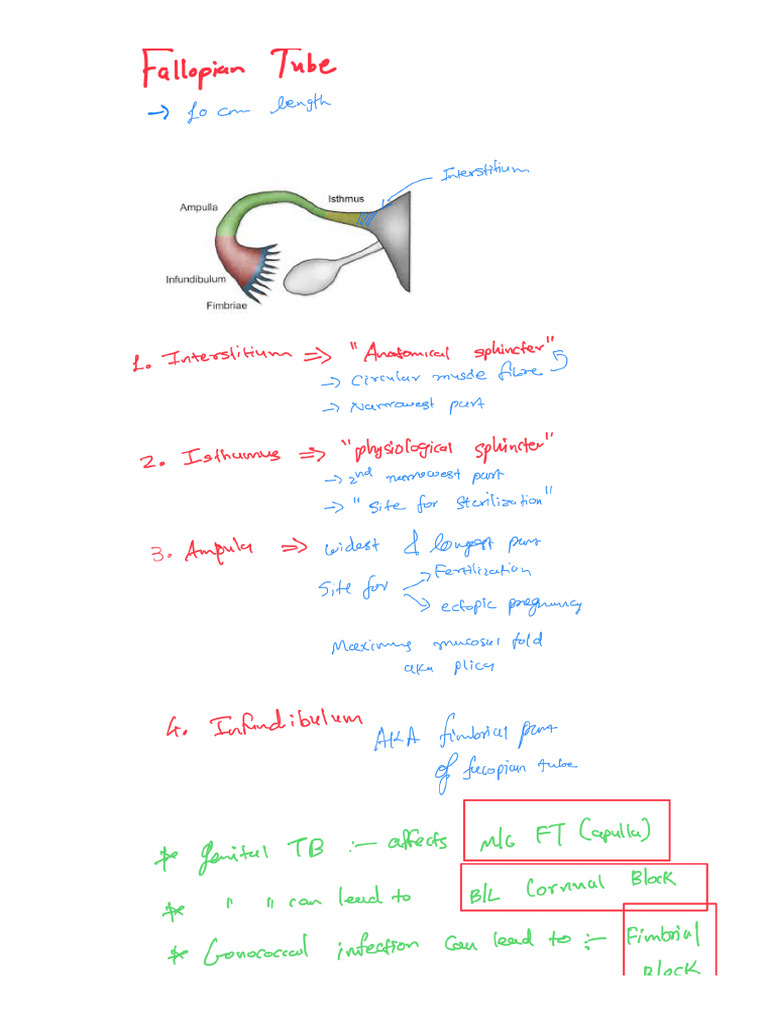 Fallopian Tube
→ 10 cm length
Interstitium
Isthmus
Ampulla
Infundibulum
Fimbriae
1. Interstitium ⇒ "Anatomical sphincter"
→ Circular muscle fibre
→ Narrowest part
2. Isthumus ⇒ "physiological sphincter"
→ 2nd narrowest part
→ "Site for Sterilization"
3. Ampula ⇒ widest & longest part
Site for → Fertilization
→ ectopic pregnancy
Maximum mucosal fold
aka plica
4. Infundibulum AKA fimbrial part
of fucopian tube
* Genital TB :- affects M/C FT (apulla)
* " " can lead to B/L Cornual Block
* Gonococcal infection can lead to :- Fimbrial
Block